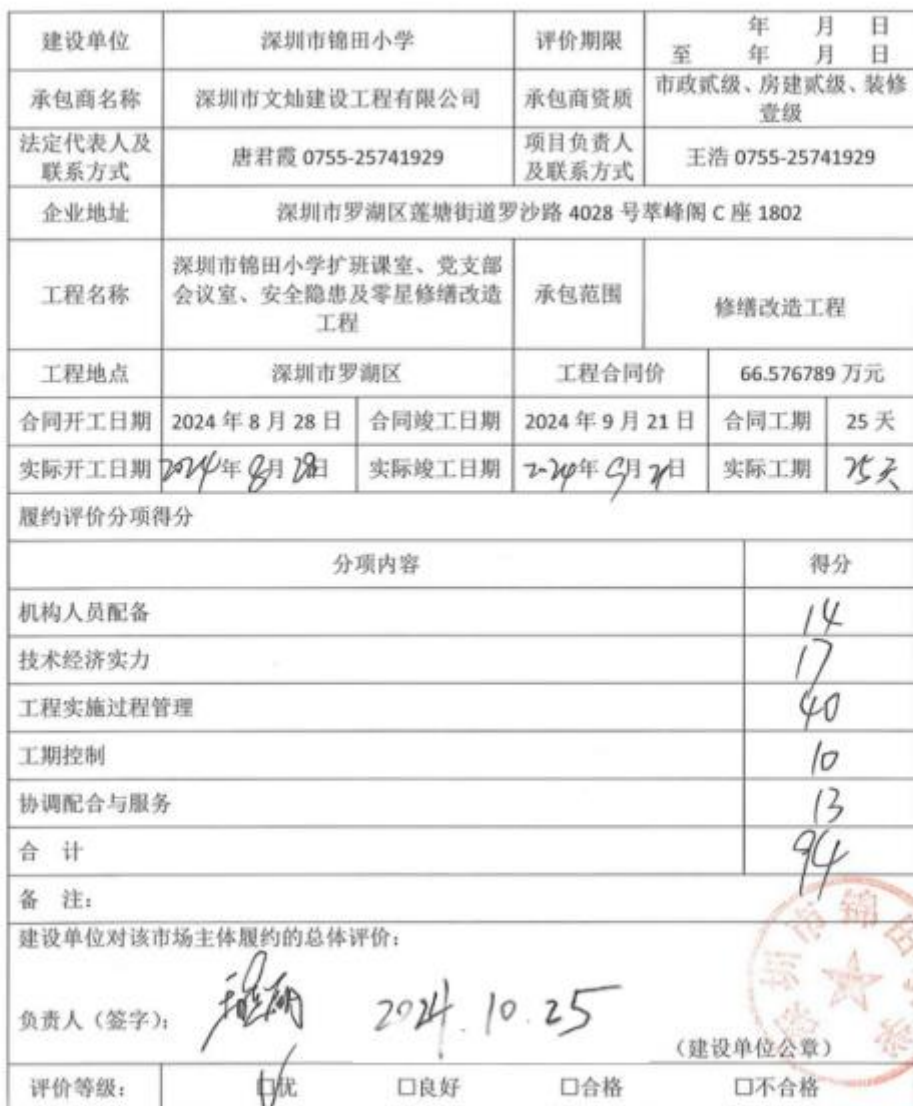 建设单位 深圳市锦田小学 评价期限 年 月 日
至 年 月 日
承包商名称 深圳市文灿建设工程有限公司 承包商资质 市政贰级、房建贰级、装修
壹级
法定代表人及
联系方式 唐君霞 0755-25741929 项目负责人
及联系方式 王浩 0755-25741929
企业地址 深圳市罗湖区莲塘街道罗沙路 4028 号萃峰阁 C 座 1802
工程名称 深圳市锦田小学扩班课室、党支部
会议室、安全隐患及零星修缮改造
工程 承包范围 修缮改造工程
工程地点 深圳市罗湖区 工程合同价 66.576789 万元
合同开工日期 2024 年 8 月 28 日 合同竣工日期 2024 年 9 月 21 日 合同工期 25 天
实际开工日期 2024年 8月 28日 实际竣工日期 2024年 9月 21日 实际工期 25天
履约评价分项得分
分项内容 得分
机构人员配备 14
技术经济实力 17
工程实施过程管理 40
工期控制 10
协调配合与服务 13
合 计 94
备 注:
建设单位对该市场主体履约的总体评价:
负责人(签字): 2024.10.25
(建设单位公章)
深圳市锦田
评价等级: ☑优 □良好 □合格 □不合格